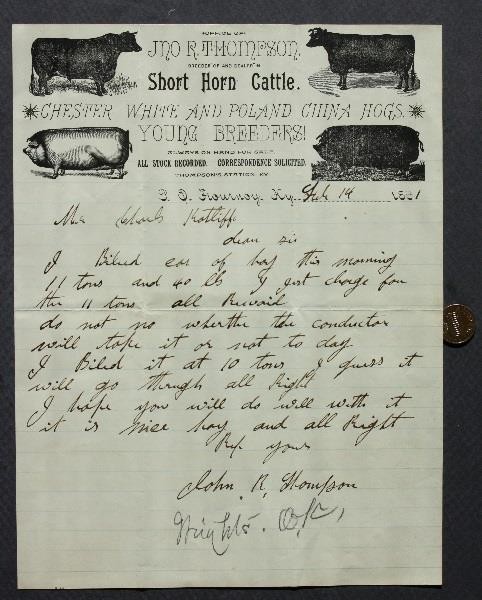 OFFICE OF
JNO R. THOMPSON.
BREEDER OF AND DEALER IN
Short Horn Cattle.
CHESTER WHITE AND POLAND CHINA HOGS.
YOUNG BREEDERS!
ALWAYS ON HAND FOR SALE.
ALL STOCK RECORDED. CORRESPONDENCE SOLICITED.
THOMPSON'S STATION, KY.
P. O. Flournoy, Ky., Feb 14 1891
Mr Charls Ratliff
dear sir
I Biled car of hay this morning
11 tons and 40 lb I just charge for
the 11 tons all
do not no whether the conductor
will take it or not to day
I Biled it at 10 tons I guess it
will go through all Right
I hope you will do well with it
it is nice hay and all Right
yours
John R, Thompson
Weights. O.K,